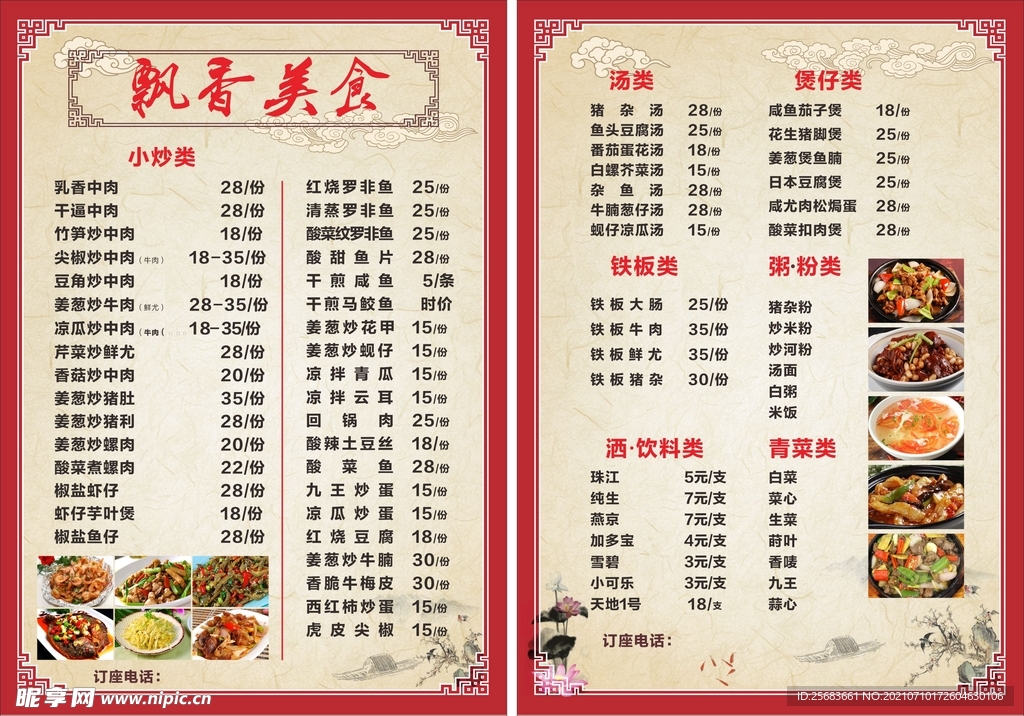 飘香美食
小炒类
乳香中肉 28/份
干逼中肉 28/份
竹笋炒中肉 18/份
尖椒炒中肉(牛肉) 18-35/份
豆角炒中肉 18/份
姜葱炒牛肉(鲜尤) 28-35/份
凉瓜炒中肉(牛肉( 18-35/份
芹菜炒鲜尤 28/份
香菇炒中肉 20/份
姜葱炒猪肚 35/份
姜葱炒猪利 28/份
姜葱炒螺肉 20/份
酸菜煮螺肉 22/份
椒盐虾仔 28/份
虾仔芋叶煲 18/份
椒盐鱼仔 28/份
红烧罗非鱼 25/份
清蒸罗非鱼 25/份
酸菜纹罗非鱼 25/份
酸甜鱼片 28/份
干煎咸鱼 5/条
干煎马鲛鱼 时价
姜葱炒花甲 15/份
姜葱炒蚬仔 15/份
凉拌青瓜 15/份
凉拌云耳 15/份
回锅肉 25/份
酸辣土豆丝 18/份
酸菜鱼 28/份
九王炒蛋 15/份
凉瓜炒蛋 15/份
红烧豆腐 18/份
姜葱炒牛腩 30/份
香脆牛梅皮 30/份
西红柿炒蛋 15/份
虎皮尖椒 15/份
订座电话：
汤类
猪杂汤 28/份
鱼头豆腐汤 25/份
番茄蛋花汤 18/份
白螺芥菜汤 15/份
杂鱼汤 28/份
牛腩葱仔汤 28/份
蚬仔凉瓜汤 15/份
煲仔类
咸鱼茄子煲 18/份
花生猪脚煲 25/份
姜葱煲鱼腩 25/份
日本豆腐煲 25/份
咸尤肉松焗蛋 28/份
酸菜扣肉煲 28/份
铁板类
铁板大肠 25/份
铁板牛肉 35/份
铁板鲜尤 35/份
铁板猪杂 30/份
粥·粉类
猪杂粉
炒米粉
炒河粉
汤面
白粥
米饭
洒·饮料类
珠江 5元/支
纯生 7元/支
燕京 7元/支
加多宝 4元/支
雪碧 3元/支
小可乐 3元/支
天地1号 18/支
青菜类
白菜
菜心
生菜
莳叶
香唛
九王
蒜心
订座电话：
昵享网 www.nipic.cn
ID:25683661 NO.20210710172604630106